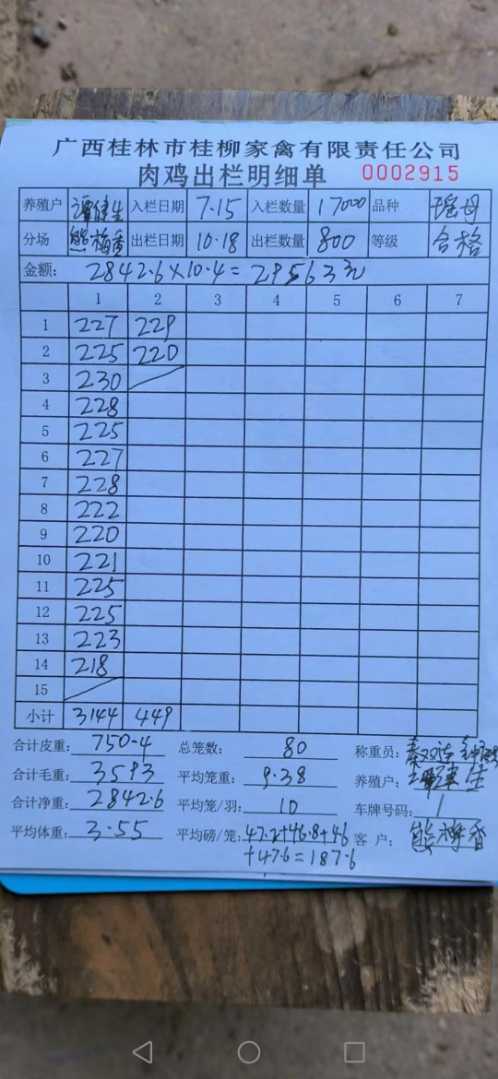 广西桂林市桂柳家禽有限责任公司
肉鸡出栏明细单 0002915
养殖户 谭健生 入栏日期 7.15 入栏数量 17000 品种 瑶母
分场 熊梅香 出栏日期 10.18 出栏数量 800 等级 合格
金额: 2842.6×10.4=29563元
1 2 3 4 5 6 7
1 227 229
2 225 220
3 230
4 228
5 225
6 227
7 228
8 222
9 220
10 221
11 225
12 225
13 223
14 218
15
小计 3144 449
合计皮重: 750.4 总笼数: 80 称重员:
合计毛重: 3593 平均笼重: 9.38 养殖户: 谭健生
合计净重: 2842.6 平均笼/羽: 10 车牌号码: /
平均体重: 3.55 平均磅/笼: 47.2+46.8+46 客 户: 熊梅香
+47.6=187.6